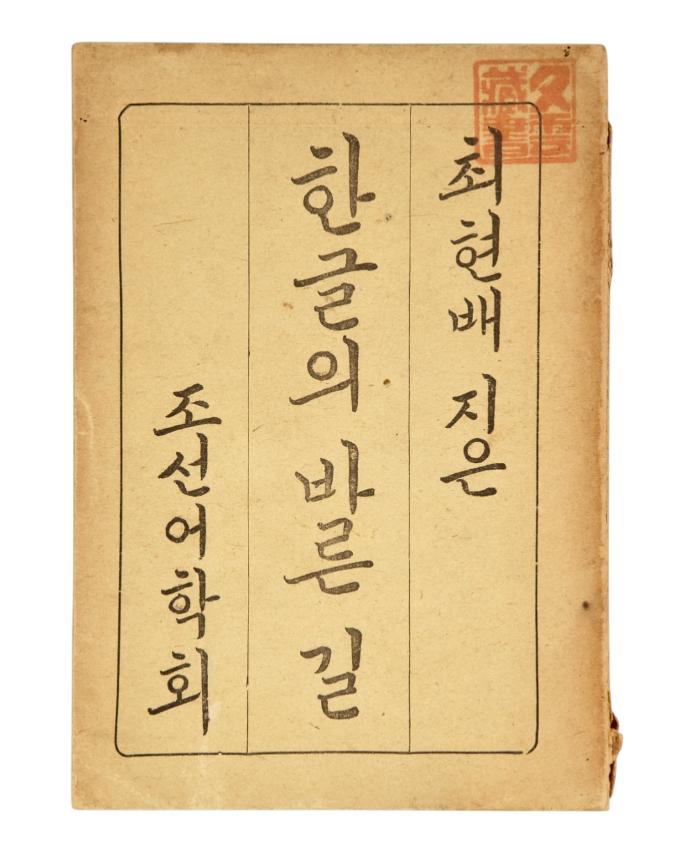 최현배 지은
한글의 바른 길
조선어학회
久雲
藏書